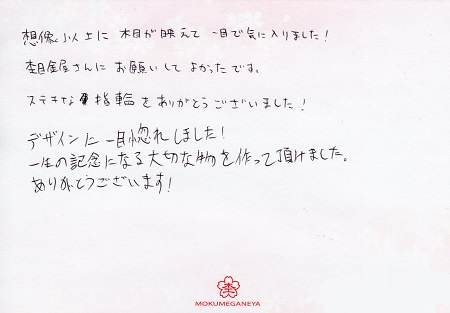 想像以上に 木目が映えて 一目で気に入りました！
杢目金屋さんに お願いして よかったです。
ステキな指輪をありがとうございました！
デザインに一目惚れしました！
一生の記念になる大切な物を作って頂けました。
ありがとうございます！
MOKUMEGANEYA